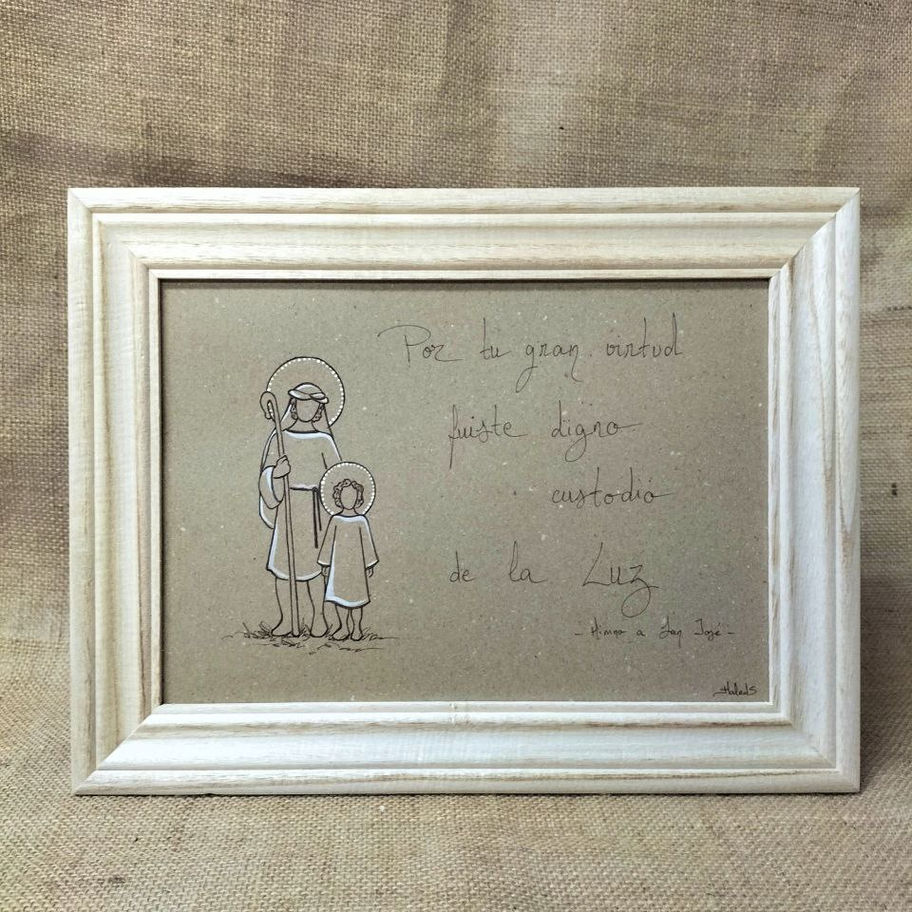 Por tu gran virtud
fuiste digno
custodio
de la Luz
- Himno a San José -